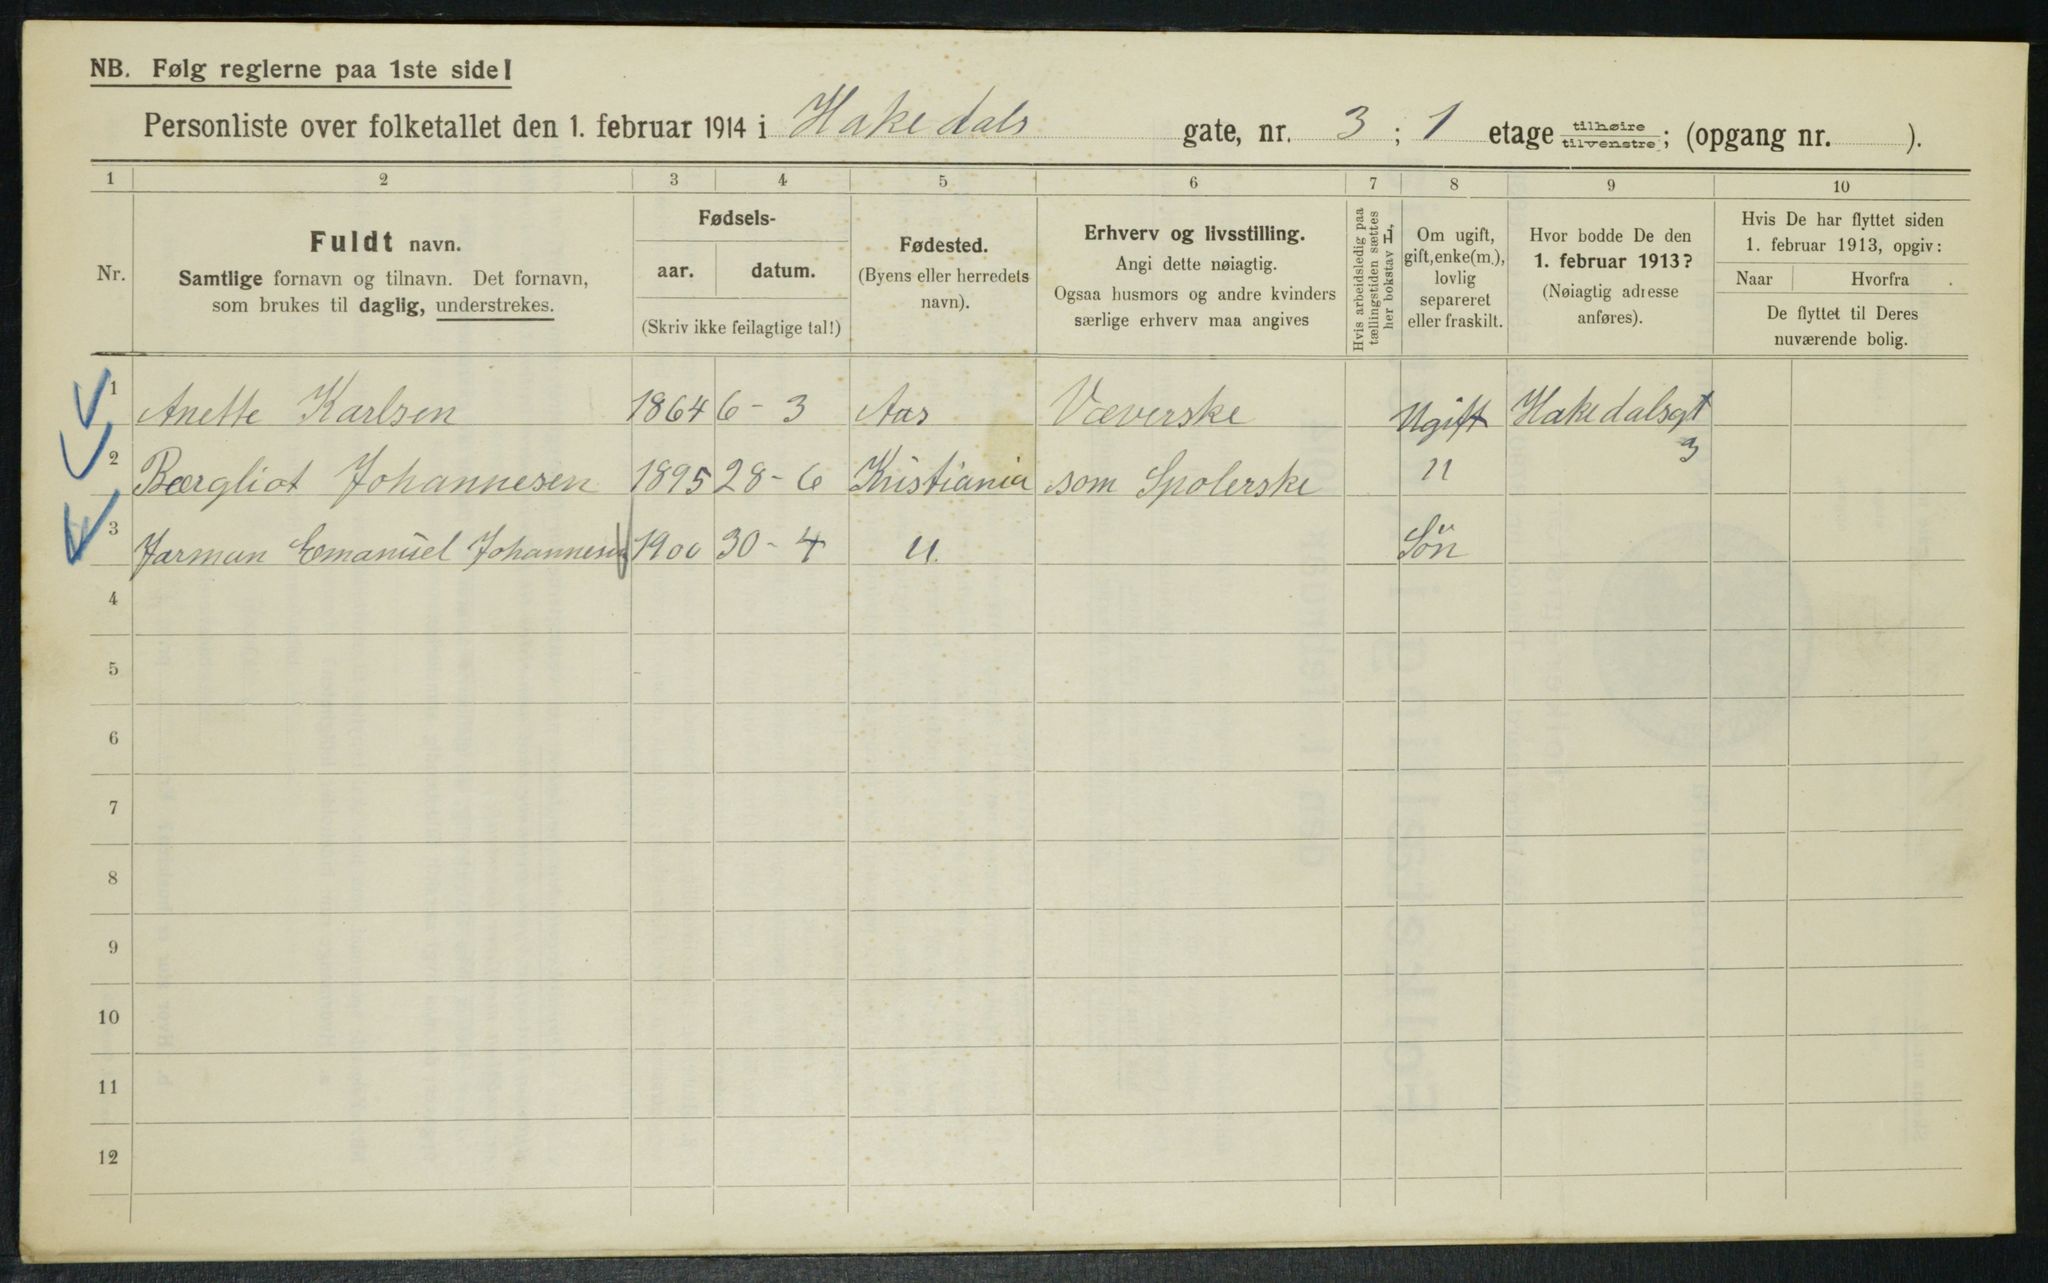 NB. Følg reglerne paa 1ste side!
Personliste over folketallet den 1. februar 1914 i Hakedals gate, nr. 3 ; 1 etage tilhøire/tilvenstre; (opgang nr. ).
1 2 3 4 5 6 7 8 9 10
Nr.
Fuldt navn.
Samtlige fornavn og tilnavn. Det fornavn,
som brukes til daglig, understrekes.
Fødsels-
aar. datum.
(Skriv ikke feilagtige tal!)
Fødested.
(Byens eller herredets
navn).
Erhverv og livsstilling.
Angi dette nøiagtig.
Ogsaa husmors og andre kvinders
særlige erhverv maa angives
Hvis arbeidsledig paa
tællingstiden sættes
her bokstav L.
Om ugift,
gift, enke(m.),
lovlig
separeret
eller fraskilt.
Hvor bodde De den
1. februar 1913?
(Nøiagtig adresse
anføres).
Hvis De har flyttet siden
1. februar 1913, opgiv:
Naar Hvorfra
De flyttet til Deres
nuværende bolig.
1 Anette Karlsen 1864 6 - 3 Aas Væverske Ugift Hakedalsgt
3
2 Bergliot Johannesen 1895 28 - 6 Kristiania som Spolerske "
3 Jarman Emanuel Johannesen 1900 30 - 4 " Sön
4
5
6
7
8
9
10
11
12